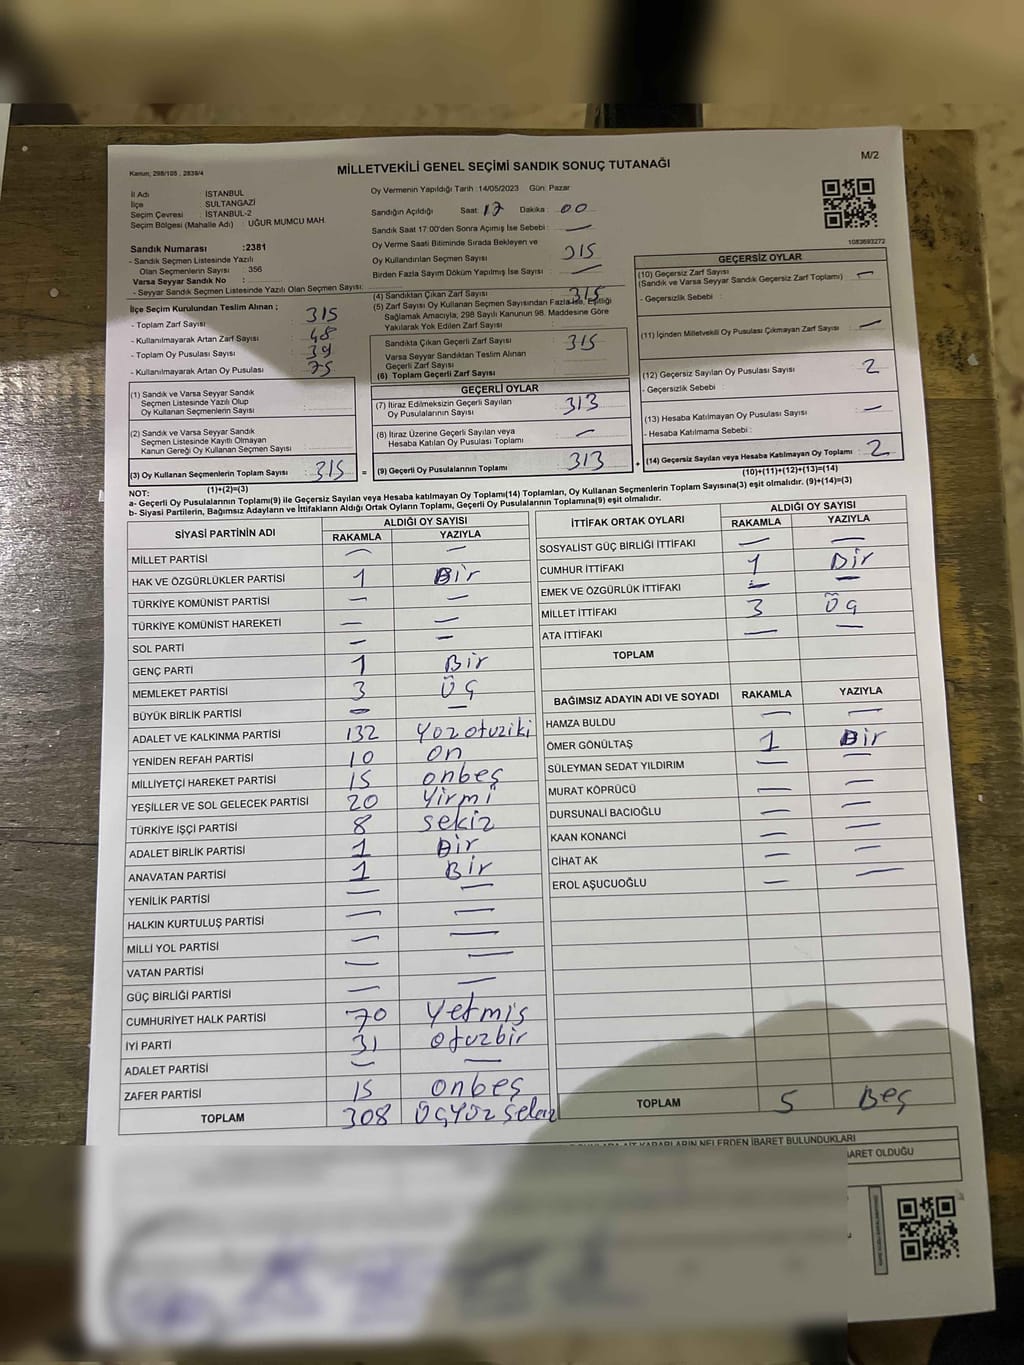 M/2
MİLLETVEKİLİ GENEL SEÇİMİ SANDIK SONUÇ TUTANAĞI
Kanun: 298/105 , 2839/4
İl Adı : İSTANBUL
İlçe : SULTANGAZİ
Seçim Çevresi : İSTANBUL-2
Seçim Bölgesi (Mahalle Adı) : UĞUR MUMCU MAH.
Sandık Numarası :2381
- Sandık Seçmen Listesinde Yazılı
Olan Seçmenlerin Sayısı : 356
Varsa Seyyar Sandık No :
- Seyyar Sandık Seçmen Listesinde Yazılı Olan Seçmen Sayısı:
Oy Vermenin Yapıldığı Tarih :14/05/2023 Gün: Pazar
Sandığın Açıldığı Saat: 17 Dakika : 00
Sandık Saat 17:00'den Sonra Açımış İse Sebebi : —
Oy Verme Saati Bitiminde Sırada Bekleyen ve
Oy Kullandırılan Seçmen Sayısı 315
Birden Fazla Sayım Döküm Yapılmış İse Sayısı : —
1083693272
İlçe Seçim Kurulundan Teslim Alınan ;
- Toplam Zarf Sayısı : 315
- Kullanılmayarak Artan Zarf Sayısı : 48
- Toplam Oy Pusulası Sayısı : 39
- Kullanılmayarak Artan Oy Pusulası : 75
(1) Sandık ve Varsa Seyyar Sandık
Seçmen Listesinde Yazılı Olup
Oy Kullanan Seçmenlerin Sayısı :
(2) Sandık ve Varsa Seyyar Sandık
Seçmen Listesinde Kayıtlı Olmayan
Kanun Gereği Oy Kullanan Seçmen Sayısı :
(3) Oy Kullanan Seçmenlerin Toplam Sayısı : 315 =
(1)+(2)=(3)
(4) Sandıktan Çıkan Zarf Sayısı : 315
(5) Zarf Sayısı Oy Kullanan Seçmen Sayısından Fazla İse, Eşitliği
Sağlamak Amacıyla, 298 Sayılı Kanunun 98. Maddesine Göre
Yakılarak Yok Edilen Zarf Sayısı :
Sandıkta Çıkan Geçerli Zarf Sayısı : 315
Varsa Seyyar Sandıktan Teslim Alınan
Geçerli Zarf Sayısı :
(6) Toplam Geçerli Zarf Sayısı :
GEÇERLİ OYLAR
(7) İtiraz Edilmeksizin Geçerli Sayılan
Oy Pusulalarının Sayısı : 313
(8) İtiraz Üzerine Geçerli Sayılan veya
Hesaba Katılan Oy Pusulası Toplamı : —
(9) Geçerli Oy Pusulalarının Toplamı : 313 +
GEÇERSİZ OYLAR
(10) Geçersiz Zarf Sayısı : —
(Sandık ve Varsa Seyyar Sandık Geçersiz Zarf Toplamı)
- Geçersizlik Sebebi :
(11) İçinden Milletvekili Oy Pusulası Çıkmayan Zarf Sayısı : —
(12) Geçersiz Sayılan Oy Pusulası Sayısı : 2
- Geçersizlik Sebebi :
(13) Hesaba Katılmayan Oy Pusulası Sayısı : —
- Hesaba Katılmama Sebebi :
(14) Geçersiz Sayılan veya Hesaba Katılmayan Oy Toplamı : 2
(10)+(11)+(12)+(13)=(14)
NOT:
a- Geçerli Oy Pusulalarının Toplamı(9) ile Geçersiz Sayılan veya Hesaba katılmayan Oy Toplamı(14) Toplamları, Oy Kullanan Seçmenlerin Toplam Sayısına(3) eşit olmalıdır. (9)+(14)=(3)
b- Siyasi Partilerin, Bağımsız Adayların ve İttifakların Aldığı Ortak Oyların Toplamı, Geçerli Oy Pusulalarının Toplamına(9) eşit olmalıdır.
SİYASİ PARTİNİN ADI ALDIĞI OY SAYISI
RAKAMLA YAZIYLA
MİLLET PARTİSİ — —
HAK VE ÖZGÜRLÜKLER PARTİSİ 1 Bir
TÜRKİYE KOMÜNİST PARTİSİ — —
TÜRKİYE KOMÜNİST HAREKETİ — —
SOL PARTİ — —
GENÇ PARTİ 1 Bir
MEMLEKET PARTİSİ 3 Üç
BÜYÜK BİRLİK PARTİSİ — —
ADALET VE KALKINMA PARTİSİ 132 Yüzotuziki
YENİDEN REFAH PARTİSİ 10 on
MİLLİYETÇİ HAREKET PARTİSİ 15 onbeş
YEŞİLLER VE SOL GELECEK PARTİSİ 20 Yirmi
TÜRKİYE İŞÇİ PARTİSİ 8 sekiz
ADALET BİRLİK PARTİSİ 1 Bir
ANAVATAN PARTİSİ 1 Bir
YENİLİK PARTİSİ — —
HALKIN KURTULUŞ PARTİSİ — —
MİLLİ YOL PARTİSİ — —
VATAN PARTİSİ — —
GÜÇ BİRLİĞİ PARTİSİ — —
CUMHURİYET HALK PARTİSİ 70 Yetmiş
İYİ PARTİ 31 otuzbir
ADALET PARTİSİ — —
ZAFER PARTİSİ 15 onbeş
TOPLAM 308
İTTİFAK ORTAK OYLARI ALDIĞI OY SAYISI
RAKAMLA YAZIYLA
SOSYALİST GÜÇ BİRLİĞİ İTTİFAKI — —
CUMHUR İTTİFAKI 1 Bir
EMEK VE ÖZGÜRLÜK İTTİFAKI — —
MİLLET İTTİFAKI 3 Üç
ATA İTTİFAKI — —
TOPLAM
BAĞIMSIZ ADAYIN ADI VE SOYADI RAKAMLA YAZIYLA
HAMZA BULDU — —
ÖMER GÖNÜLTAŞ 1 Bir
SÜLEYMAN SEDAT YILDIRIM — —
MURAT KÖPRÜCÜ — —
DURSUNALİ BACIOĞLU — —
KAAN KONANCİ — —
CİHAT AK — —
EROL AŞUCUOĞLU — —
TOPLAM 5 Beş
KARARLARIN NELERDEN İBARET BULUNDUKLARI
BARET OLDUĞU